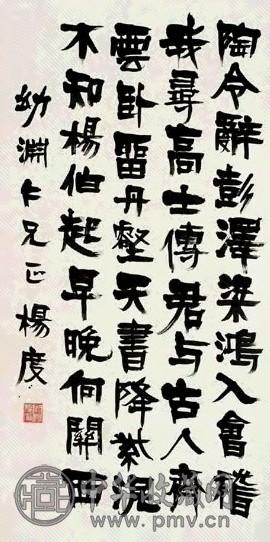 陶令辭彭澤梁鴻入會稽
我尋高士傳君与古人齊
雲臥留丹壑天書降紫泥
不知楊伯起早晚向關西
幼淵仁兄正楊度
中华收藏网
www.pmv.cn